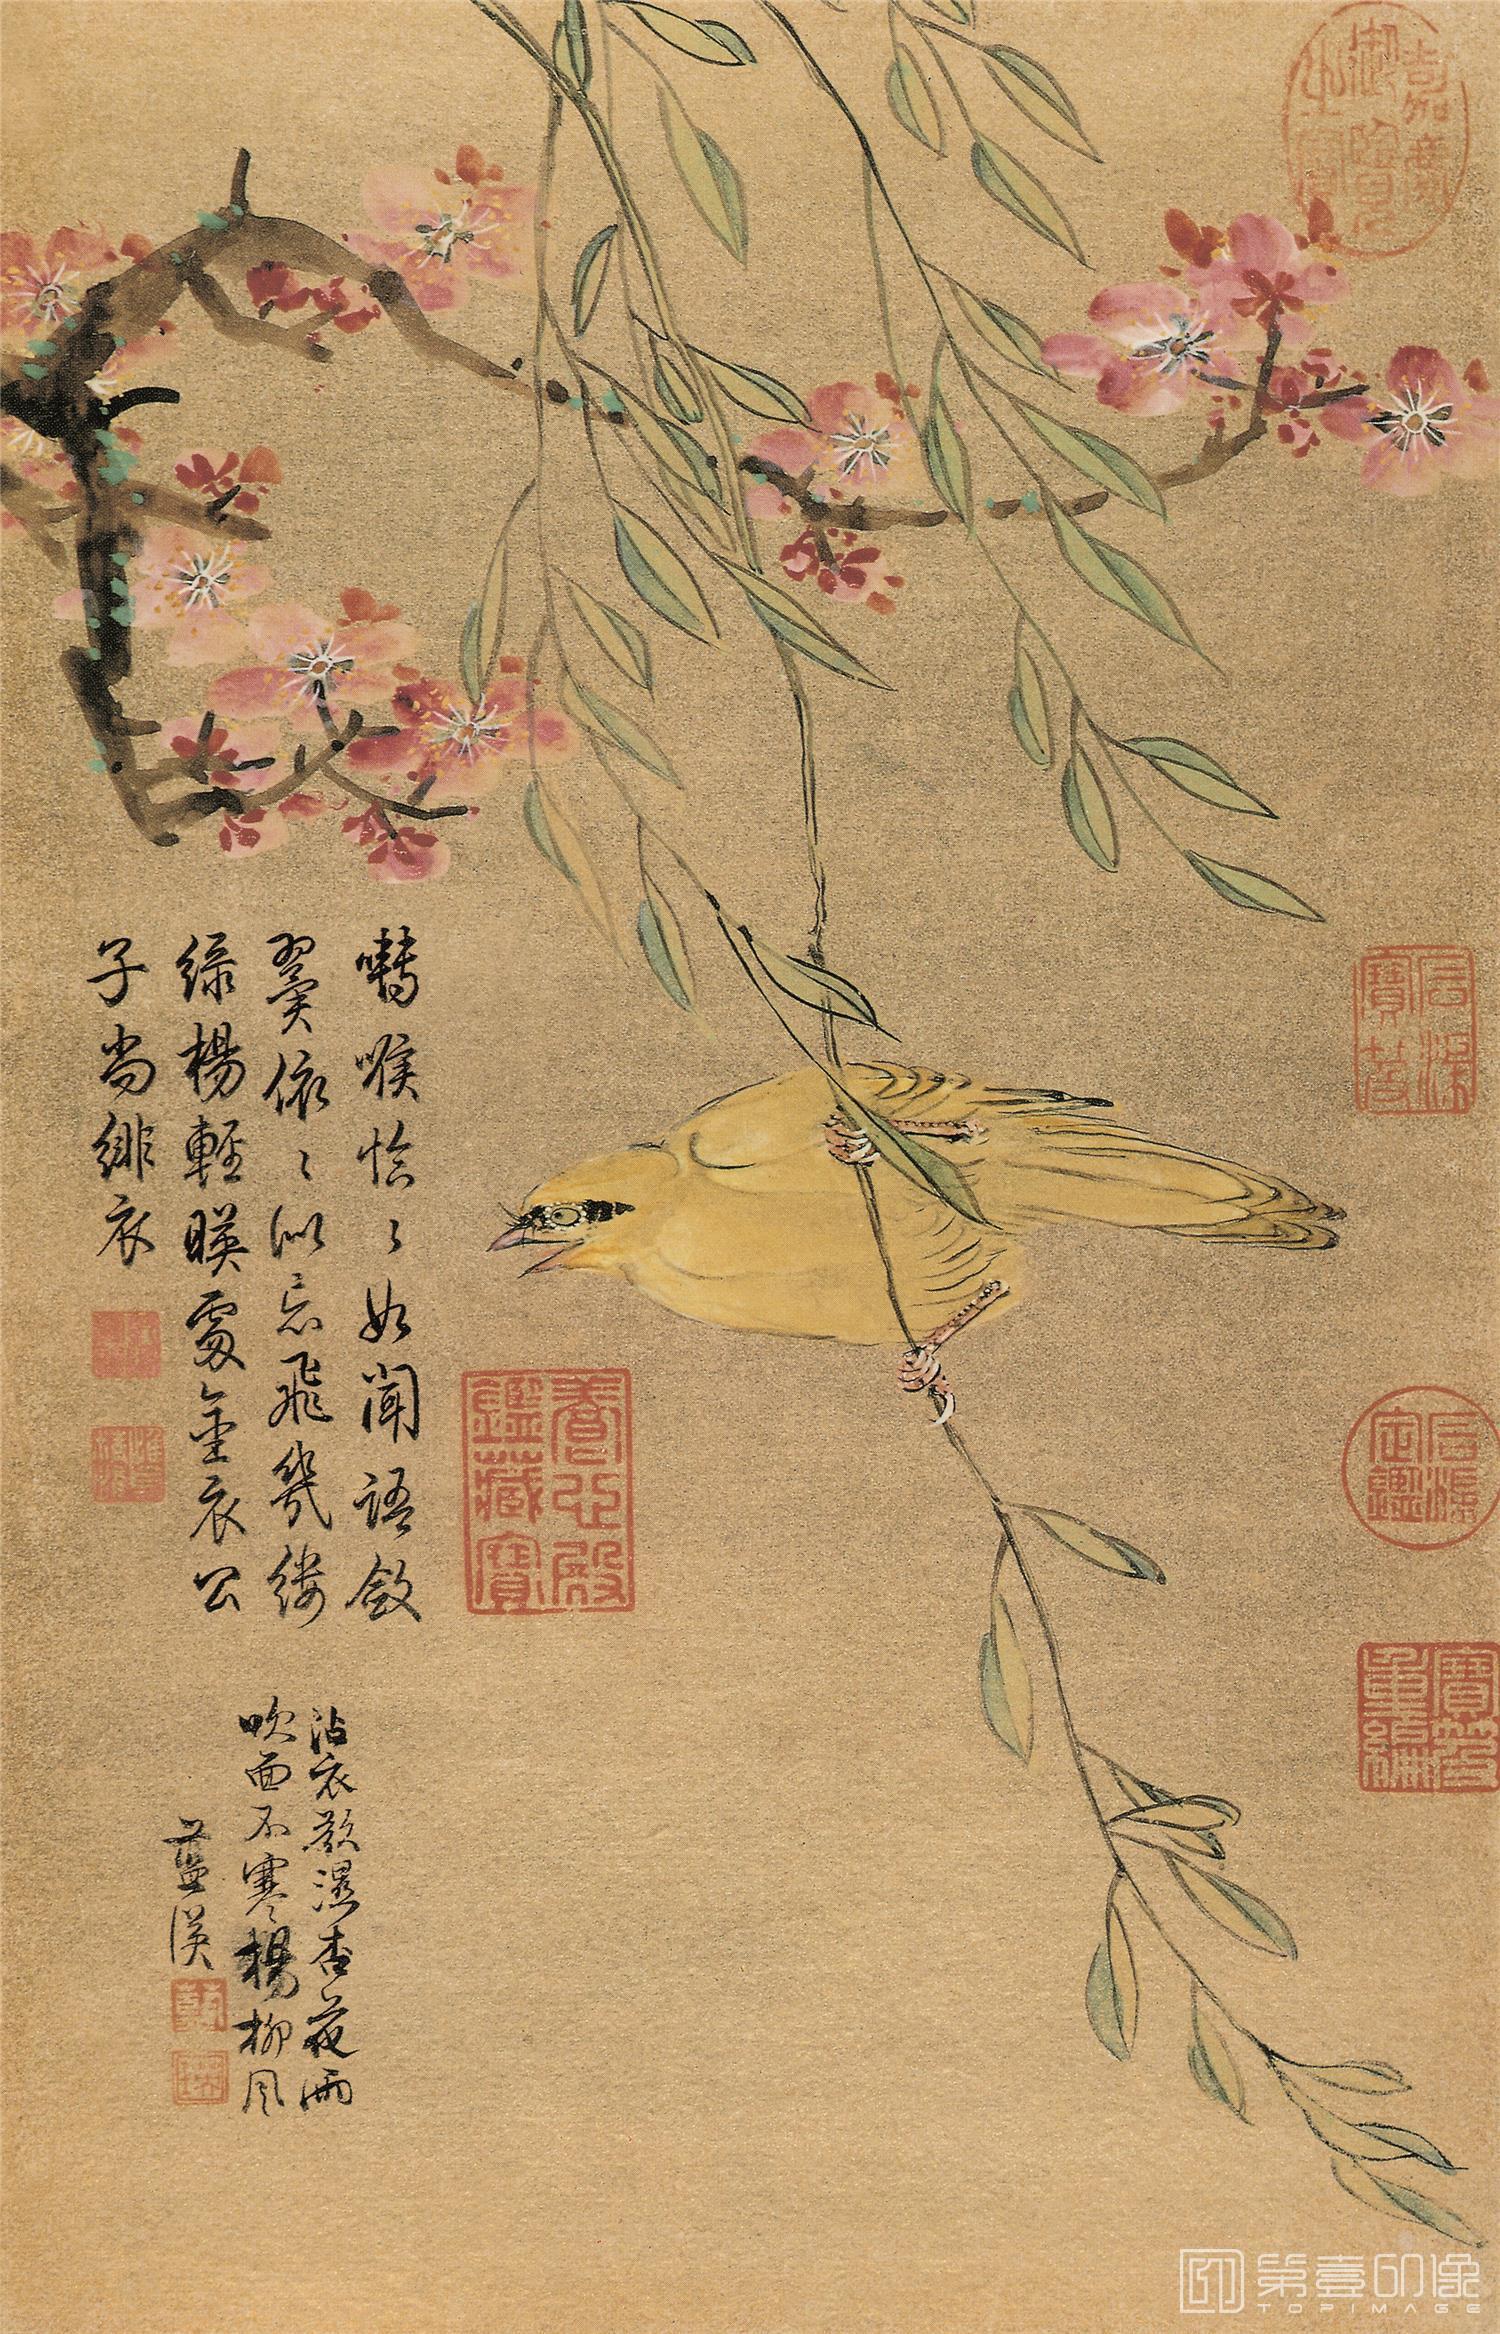 囀喉恰〻如聞語斂
翼依〻似忘飛幾縷
綠楊輕暎處金衣公
子尚緋衣
沾衣欲濕杏花雨
吹面不寒楊柳風
藍瑛
嘉慶御覽之寶
石渠寶笈
石渠定鑑
寶笈重編
養心殿鑑藏寶
第壹印像
TOPIMAGE